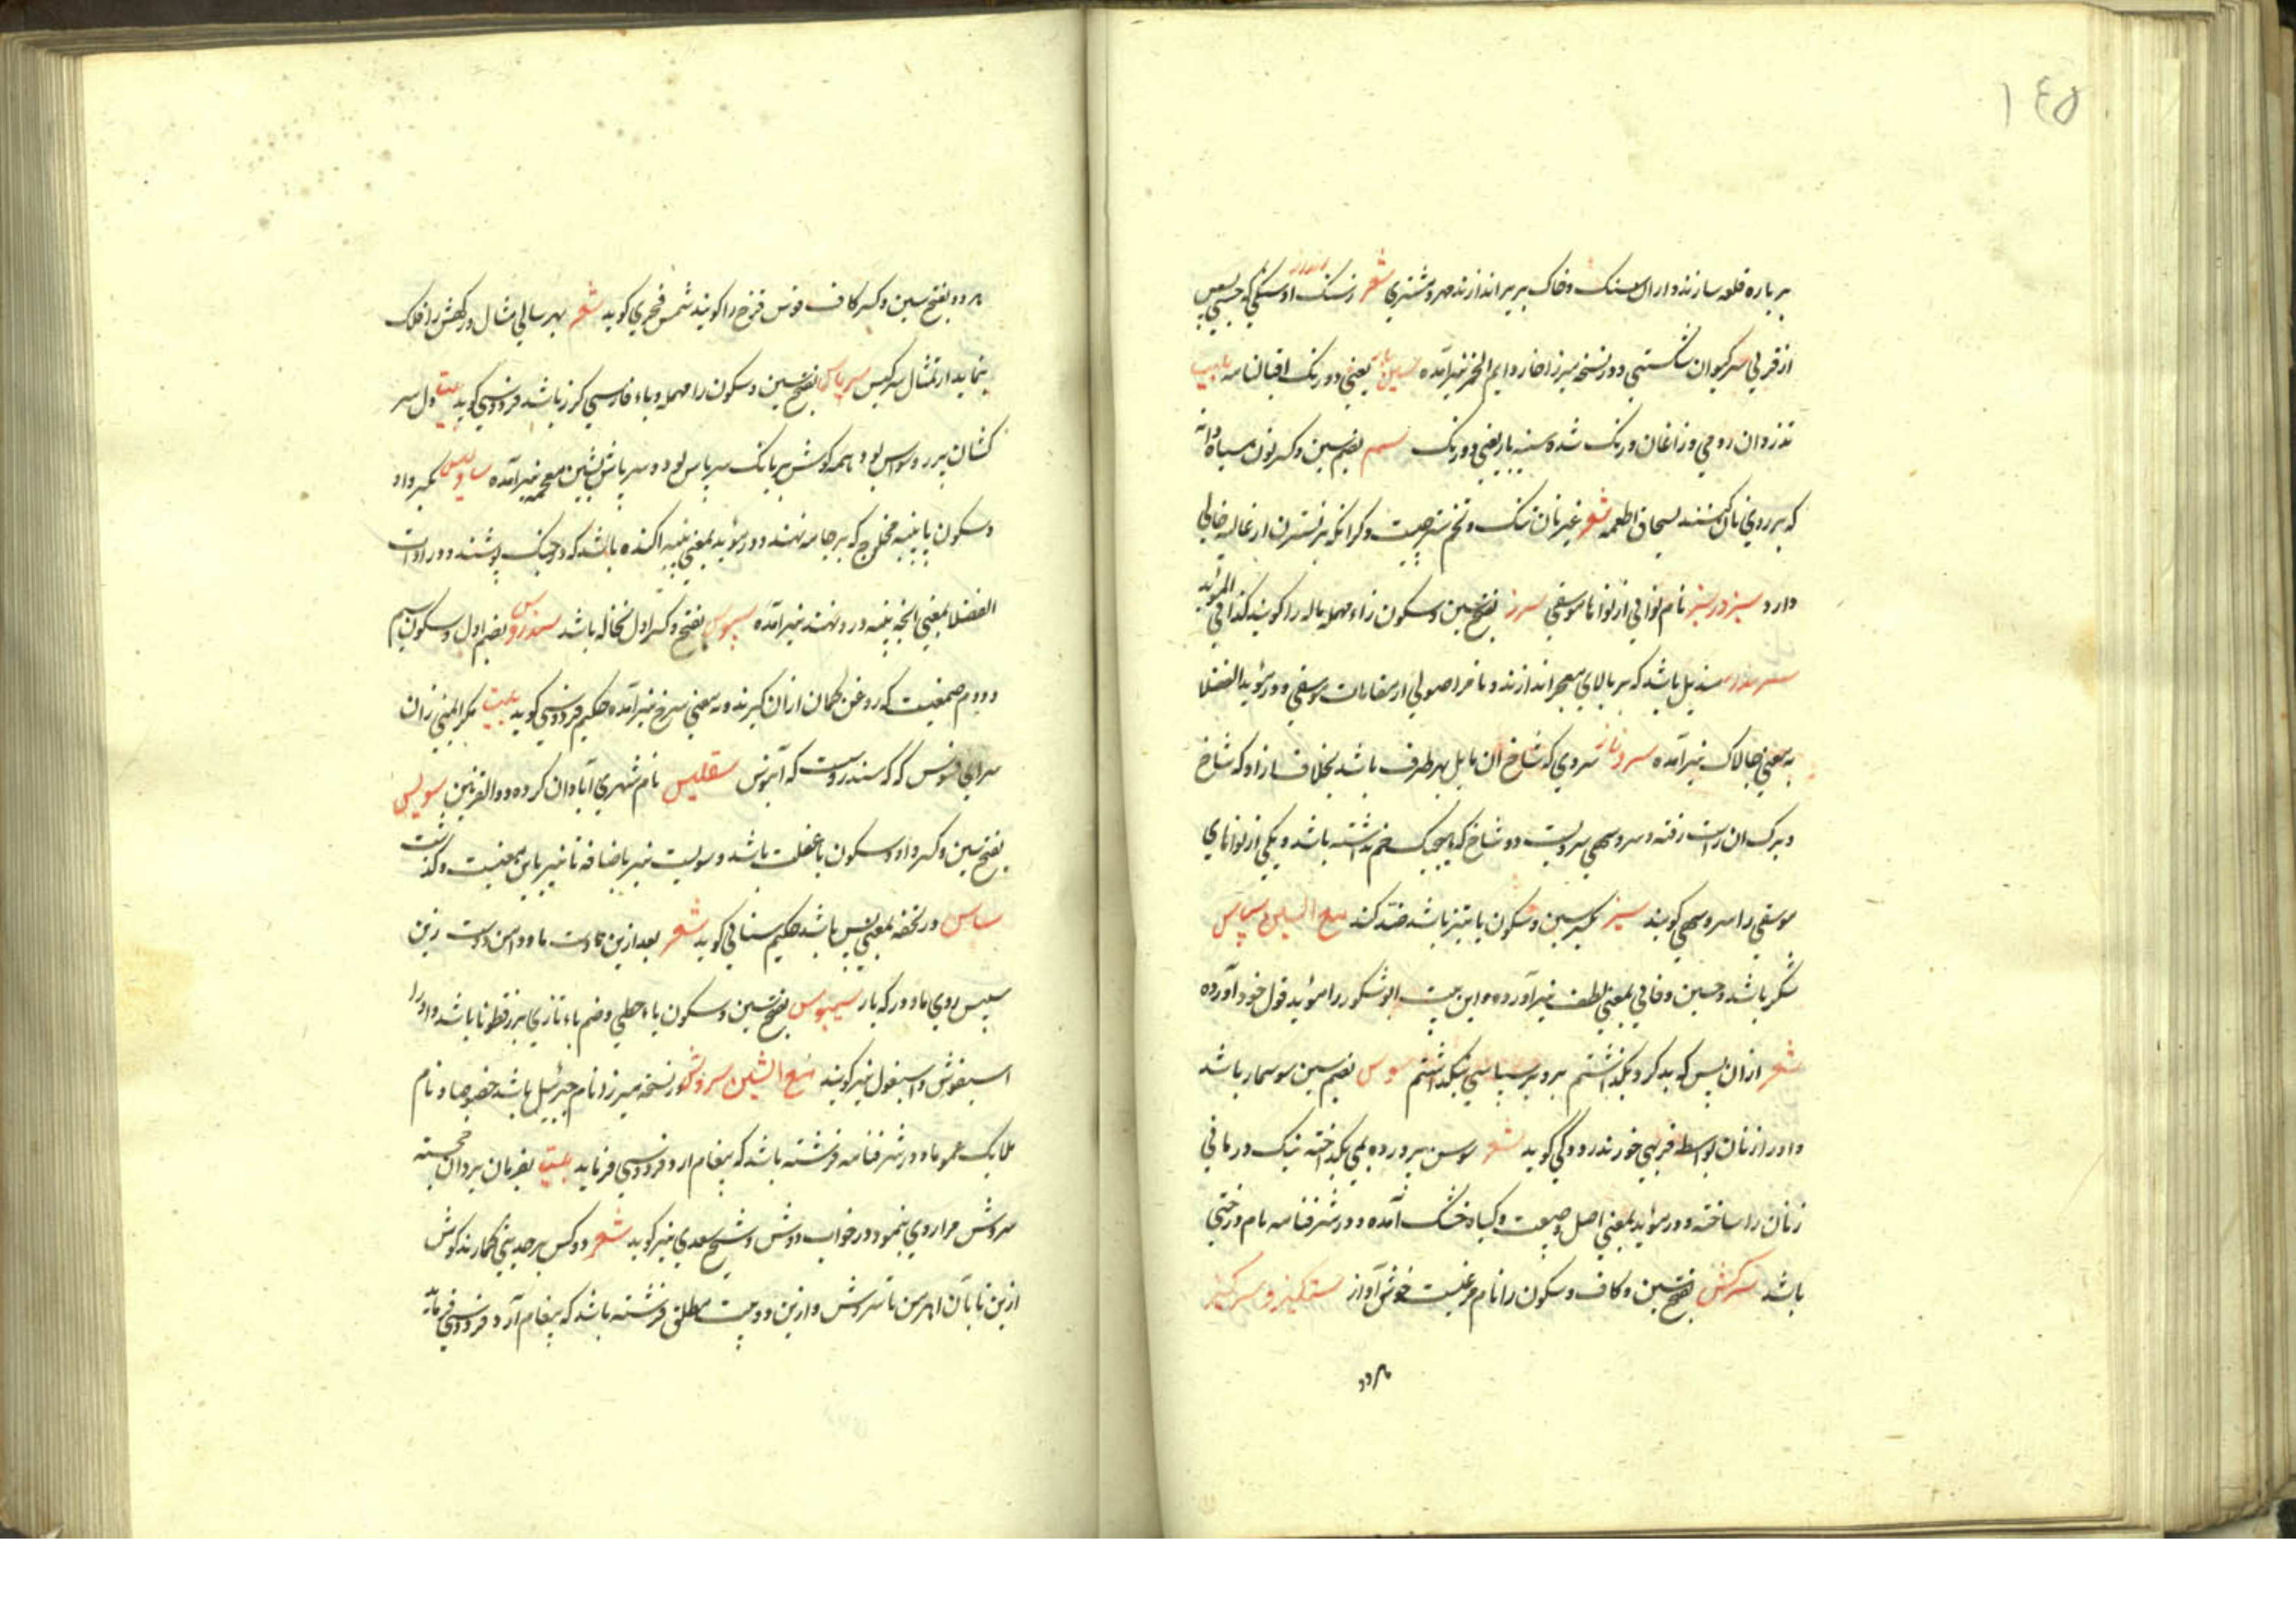 ١٤٥
بر باره قلعه سازند و از ان سنگ و خاک بر سر اندازند مهر و مشتری شعر ز سنک او سنکی که جستی پس
از قرنی سر کیوان شکستی و در نسخه میرزا خار دایم الخمر نیز آمده یعنی دو رنک اقبالنامه بیت
تذروان رومی و زاغان و رنک شده سینه باز یعنی دو رنک بضم سین و کسر نون سیاه دانه
که بر روی نان کنند بسحاق اطعمه شعر غیر نان تنک و تخم و کرانکه بر نسترن از غالیه خالی
دارد سبز در سبز نام نوایی از نواها موسیقی سرز بفتح سین و سکون زاء مهمله باله را کویند کذا فی المؤید
مندیل باشد که بر بالای معجر اندازند و نام اصولی از مقامات موسیقی و در مؤید الفضلا
به معنی چالاک نیز آمده سرو ناز سروی که شاخ ان مایل بهر طرف باشد بخلاف ازاد که شاخ
و برک ان راست رفته و سرو سهی سرویست دو شاخ که هیچیک خم نداشته باشد و یکی از نواهای
موسیقی را سرو سهی کویند سیز بکسر سین و سکون یا تیز باشد ضد کند مع السین سپاس
شکر باشد و حسین وفایی بمعنی لطف نیز آورده و این بیت ابو شکور را مؤید قول خود آورده
شعر ازان پس کوید کر و بکذاشتم برو بر سپاسی بنکذاشتم سوس بضم سین سوسمار باشد
و او را زنان بواسطه فربهی خورند رودکی کوید شعر سوس پرورده بمی بکداخته نیک درمانی
زنان را ساخته و در مؤید بمعنی اصل و طبیعت و کیاه خشک آمده و در شرفنامه نام درختی
باشد سرکش بفتح سین و کاف و سکون را نام مرغیست خوش آواز سرکیز
هر دو
هر دو بفتح سین و کسر کاف قوس قزح را کویند شمس فخری کوید شعر بهر سالی مثال درکهش را فلک
بنماید از تمثال سرکیس سرپاس بفتح سین و سکون را مهمله و باء فارسی کرز باشد فردوسی کوید بیت دل سر
کشان پر ز وسواس بود همه کوش بر بانک سرپاس بود و سرپاش بشین معجمه نیز آمده بکسر واو
و سکون یا پنبه محلوج که بر جامه نهند و در مؤید بمعنی پنبه اکنده باشد که در جنک پوشند و در ادات
الفضلا بمعنی انچه پنبه در و نهند نیز آمده سپوس بفتح و کسر اول نخاله باشد سندروس بضم اول و سکون سیم
و دوم صمغیست که روغن کمان ازان کیرند و به معنی سرخ نیز آمده حکیم فردوسی کوید بیت نکر المنی زان
سرای فسوس که که سندروست که آبنوس سقلیس نام شهری آبادان کرده ذو القرنین سویس
بفتح سین و کسر واو و سکون یا غفلت باشد و سویست نیز باضافه تا نیز باین معنیست و کذشت
سپاس در تحفه بمعنی پس باشد حکیم سنائی کوید شعر بعد ازین ما و دامن دوست زین
سپس روی ما و در که یار سیبوس بفتح سین و سکون یاء حطی و ضم باء تازی بزر قطونا باشد و او را
اسبغوش و اسبغول نیز کویند مع الشین سروش در نسخه میرزا نام جبرئیل باشد خصوصا و نام
ملایک عموما و در شرفنامه فرشته باشد که پیغام ارد فردوسی فرماید بیت بفرمان یزدان خجسته
سروش مرا روی بنمود در خواب دوش و شیخ سعدی نیز کوید شعر دو کس بر حدیثی کمارند کوش
ازین تا بآن اهرمن تا سروش و ازین دو بیت مطلق فرشته باشد که پیغام آرد فردوسی فرماید